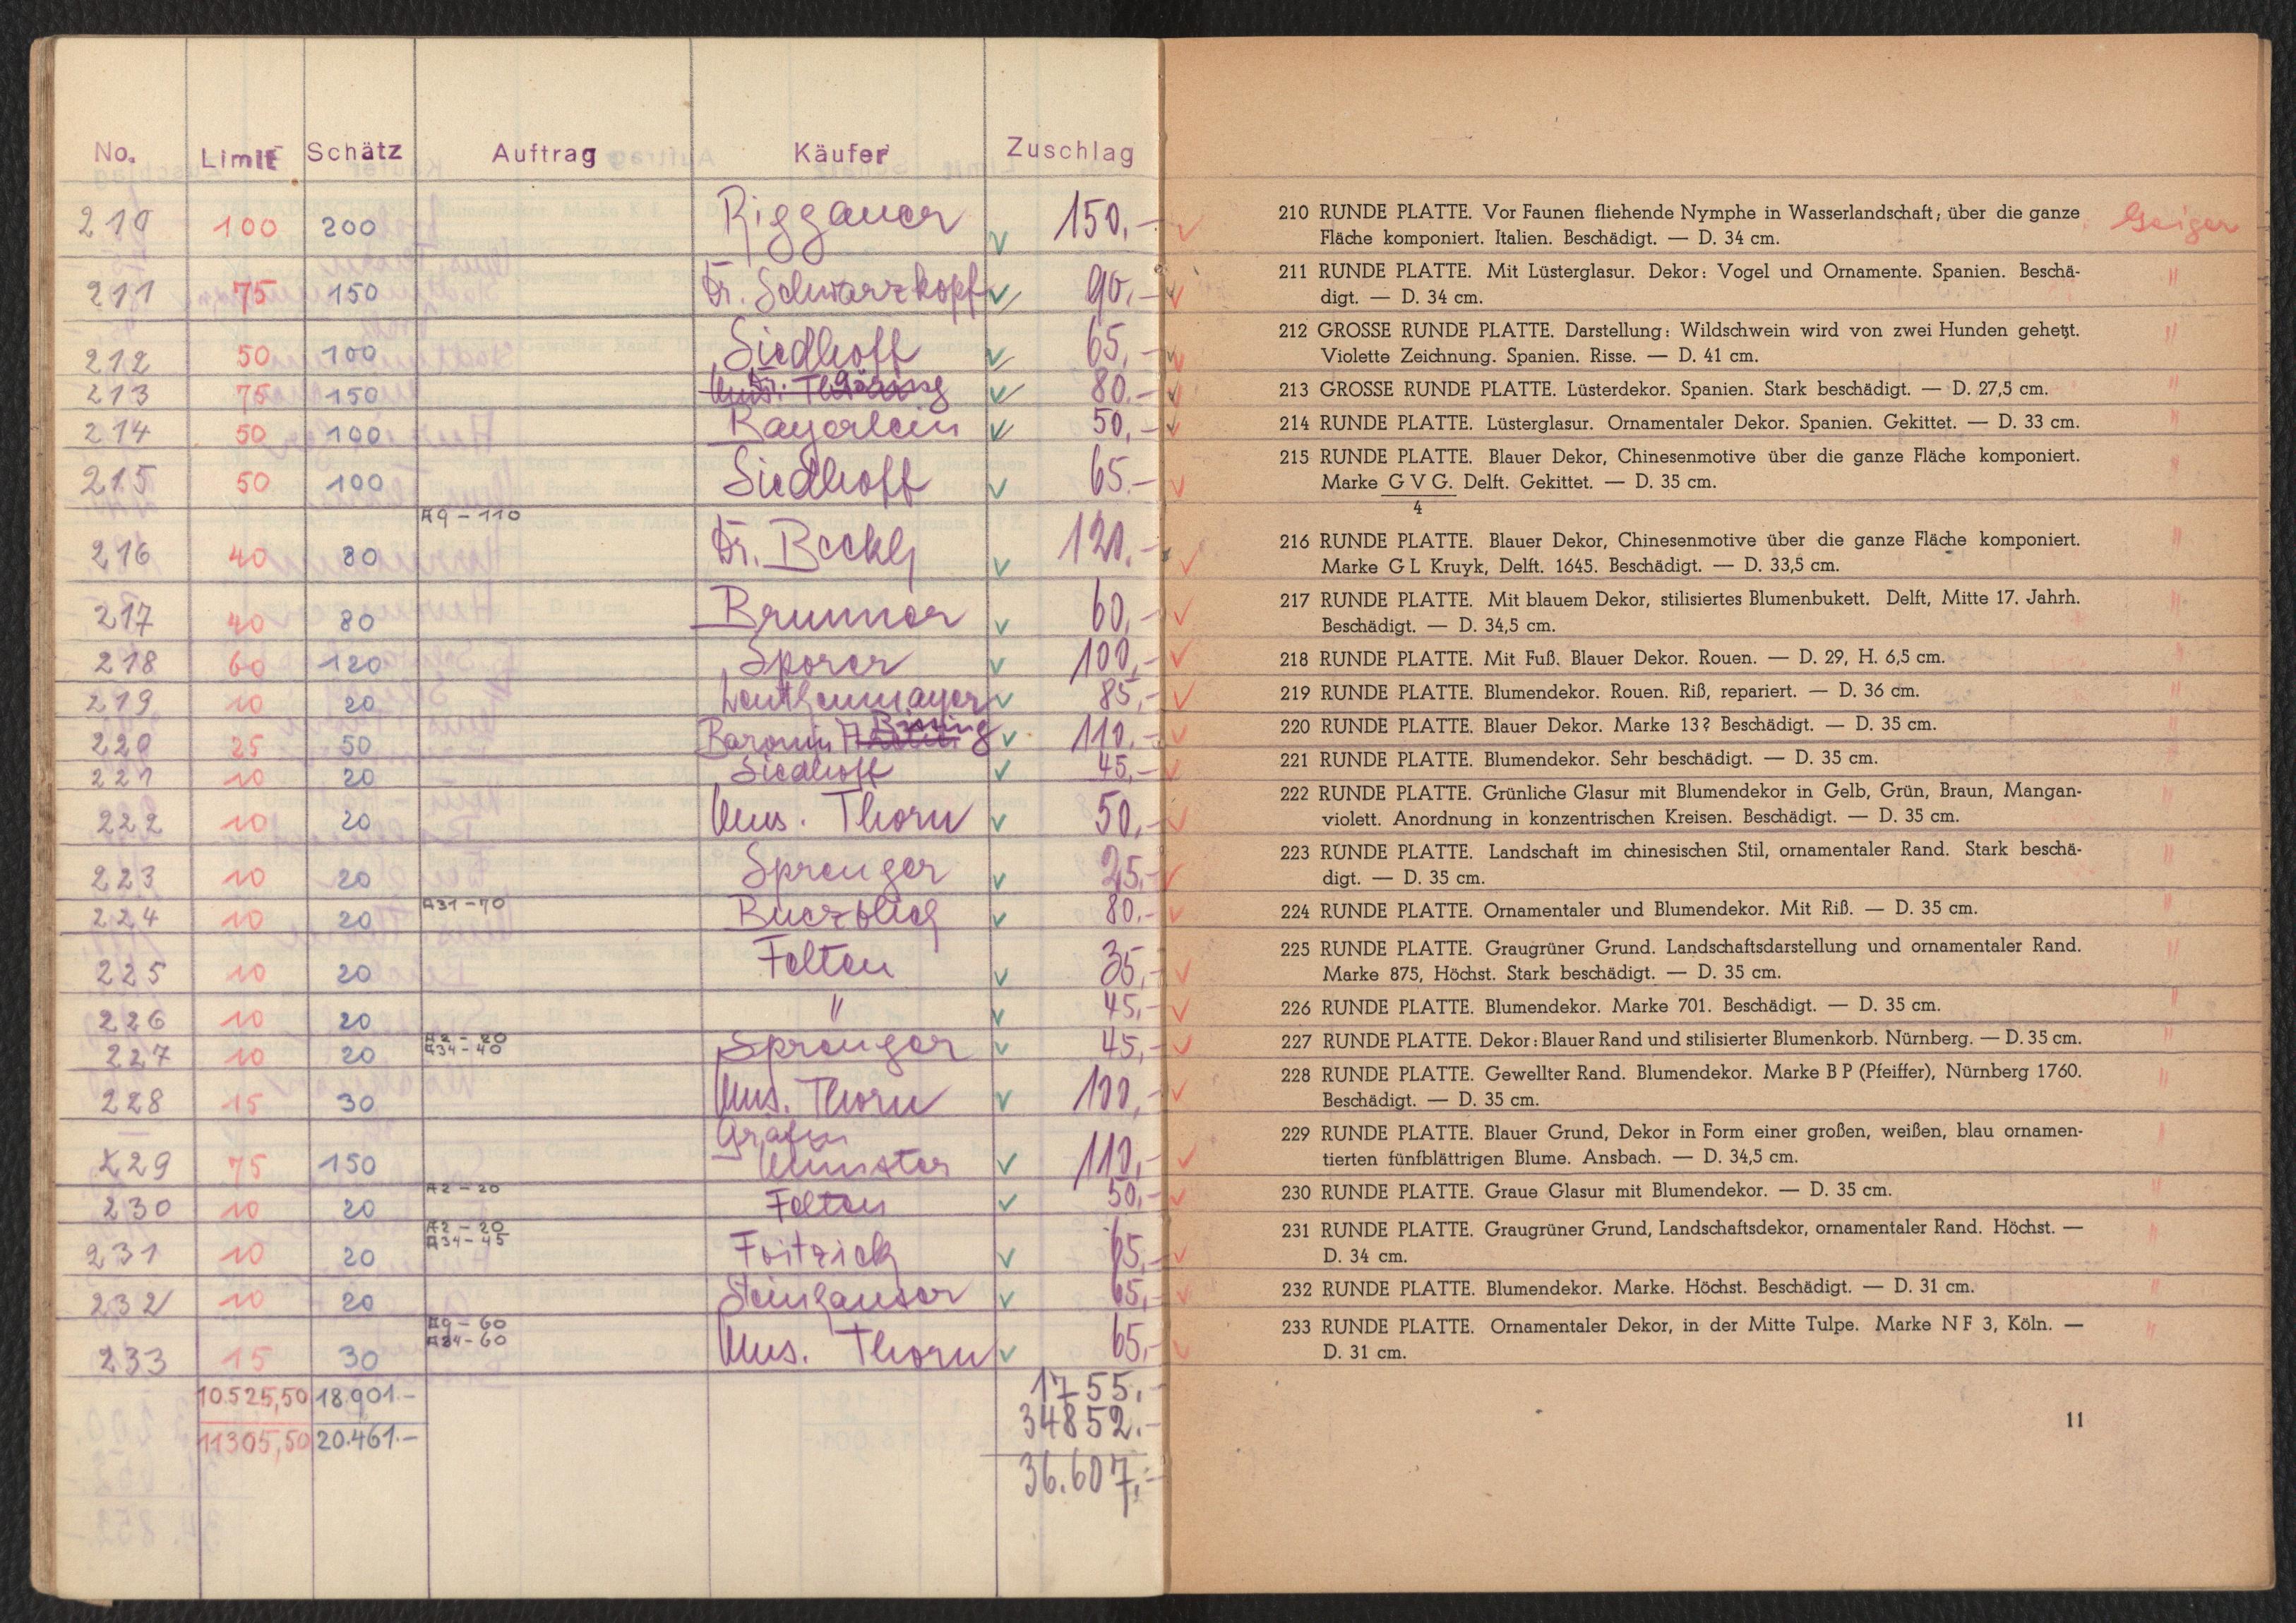 No. Limit Schätz Auftrag Käufer Zuschlag
210 100 200 Riggauer 150.-
211 75 150 Dr. Schwarzkopf 90.-
212 50 100 Siedhoff 65.-
213 75 150 80.-
214 50 100 Bayerlein 50.-
215 50 100 Siedhoff 65.-
216 40 80 A9-110 Dr. 120.-
217 40 80 Brunner 60.-
218 60 120 Sporer 100.-
219 10 20 Leuthenmayer 85.-
220 25 50 Baronin 110.-
221 10 20 Siedhoff 45.-
222 10 20 Mus. Thorn 50.-
223 10 20 Sprenger 25.-
224 10 20 A31-70 80.-
225 10 20 Felten 35.-
226 10 20 " 45.-
227 10 20 A2-20
A34-40 Sprenger 45.-
228 15 30 Mus. Thorn 100.-
229 75 150 Gräfin
Münster 110.-
230 10 20 A2-20 Felten 50.-
231 10 20 A2-20
A34-45 Foitzick 65.-
232 10 20 Steinhauser 65.-
233 15 30 A9-60
A34-60 Mus. Thorn 65.-
10.525,50 18.901.- 1755.-
34852.-
11305,50 20.461.-
36.607,-
210 RUNDE PLATTE. Vor Faunen fliehende Nymphe in Wasserlandschaft; über die ganze Geiger
Fläche komponiert. Italien. Beschädigt. — D. 34 cm.
211 RUNDE PLATTE. Mit Lüsterglasur. Dekor: Vogel und Ornamente. Spanien. Beschä- "
digt. — D. 34 cm.
212 GROSSE RUNDE PLATTE. Darstellung: Wildschwein wird von zwei Hunden gehetzt. "
Violette Zeichnung. Spanien. Risse. — D. 41 cm.
213 GROSSE RUNDE PLATTE. Lüsterdekor. Spanien. Stark beschädigt. — D. 27,5 cm. "
214 RUNDE PLATTE. Lüsterglasur. Ornamentaler Dekor. Spanien. Gekittet. — D. 33 cm. "
215 RUNDE PLATTE. Blauer Dekor, Chinesenmotive über die ganze Fläche komponiert. "
Marke G V G. Delft. Gekittet. — D. 35 cm.
4
216 RUNDE PLATTE. Blauer Dekor, Chinesenmotive über die ganze Fläche komponiert. "
Marke G L Kruyk, Delft. 1645. Beschädigt. — D. 33,5 cm.
217 RUNDE PLATTE. Mit blauem Dekor, stilisiertes Blumenbukett. Delft, Mitte 17. Jahrh. "
Beschädigt. — D. 34,5 cm.
218 RUNDE PLATTE. Mit Fuß. Blauer Dekor. Rouen. — D. 29, H. 6,5 cm. "
219 RUNDE PLATTE. Blumendekor. Rouen. Riß, repariert. — D. 36 cm. "
220 RUNDE PLATTE. Blauer Dekor. Marke 13? Beschädigt. — D. 35 cm. "
221 RUNDE PLATTE. Blumendekor. Sehr beschädigt. — D. 35 cm. "
222 RUNDE PLATTE. Grünliche Glasur mit Blumendekor in Gelb, Grün, Braun, Mangan- "
violett. Anordnung in konzentrischen Kreisen. Beschädigt. — D. 35 cm.
223 RUNDE PLATTE. Landschaft im chinesischen Stil, ornamentaler Rand. Stark beschä- "
digt. — D. 35 cm.
224 RUNDE PLATTE. Ornamentaler und Blumendekor. Mit Riß. — D. 35 cm. "
225 RUNDE PLATTE. Graugrüner Grund. Landschaftsdarstellung und ornamentaler Rand. "
Marke 875, Höchst. Stark beschädigt. — D. 35 cm.
226 RUNDE PLATTE. Blumendekor. Marke 701. Beschädigt. — D. 35 cm. "
227 RUNDE PLATTE. Dekor: Blauer Rand und stilisierter Blumenkorb. Nürnberg. — D. 35 cm. "
228 RUNDE PLATTE. Gewellter Rand. Blumendekor. Marke B P (Pfeiffer), Nürnberg 1760. "
Beschädigt. — D. 35 cm.
229 RUNDE PLATTE. Blauer Grund, Dekor in Form einer großen, weißen, blau ornamen- "
tierten fünfblättrigen Blume. Ansbach. — D. 34,5 cm.
230 RUNDE PLATTE. Graue Glasur mit Blumendekor. — D. 35 cm. "
231 RUNDE PLATTE. Graugrüner Grund, Landschaftsdekor, ornamentaler Rand. Höchst. — "
D. 34 cm.
232 RUNDE PLATTE. Blumendekor. Marke. Höchst. Beschädigt. — D. 31 cm. "
233 RUNDE PLATTE. Ornamentaler Dekor, in der Mitte Tulpe. Marke N F 3, Köln. — "
D. 31 cm.
11